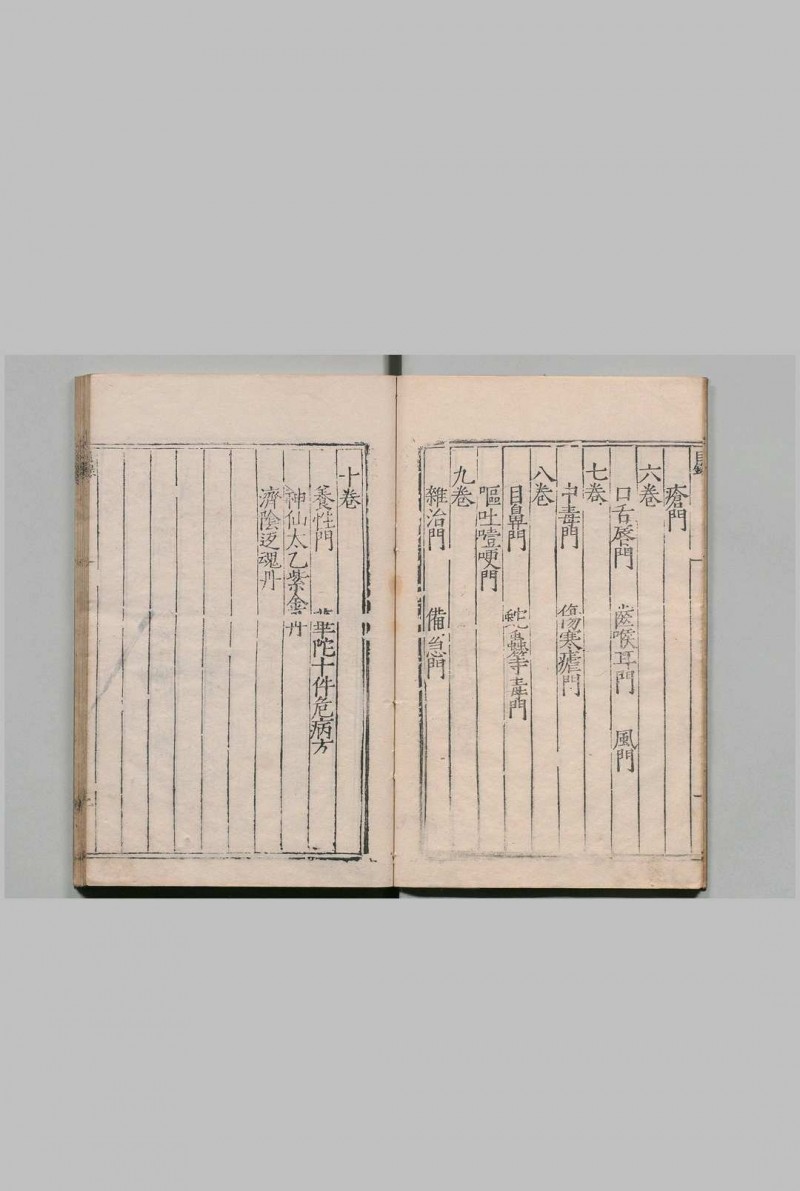 目錄
瘡門
六卷
口舌唇門 齒喉耳門 風門
七卷
中毒門 傷寒瘧門
八卷
目鼻門 蛇蟲䗍等毒門
嘔吐噎哽門
九卷
雜治門 備急門
十卷
養性門 華陀十件危病方
神仙太乙紫金丹
濟陰返魂丹